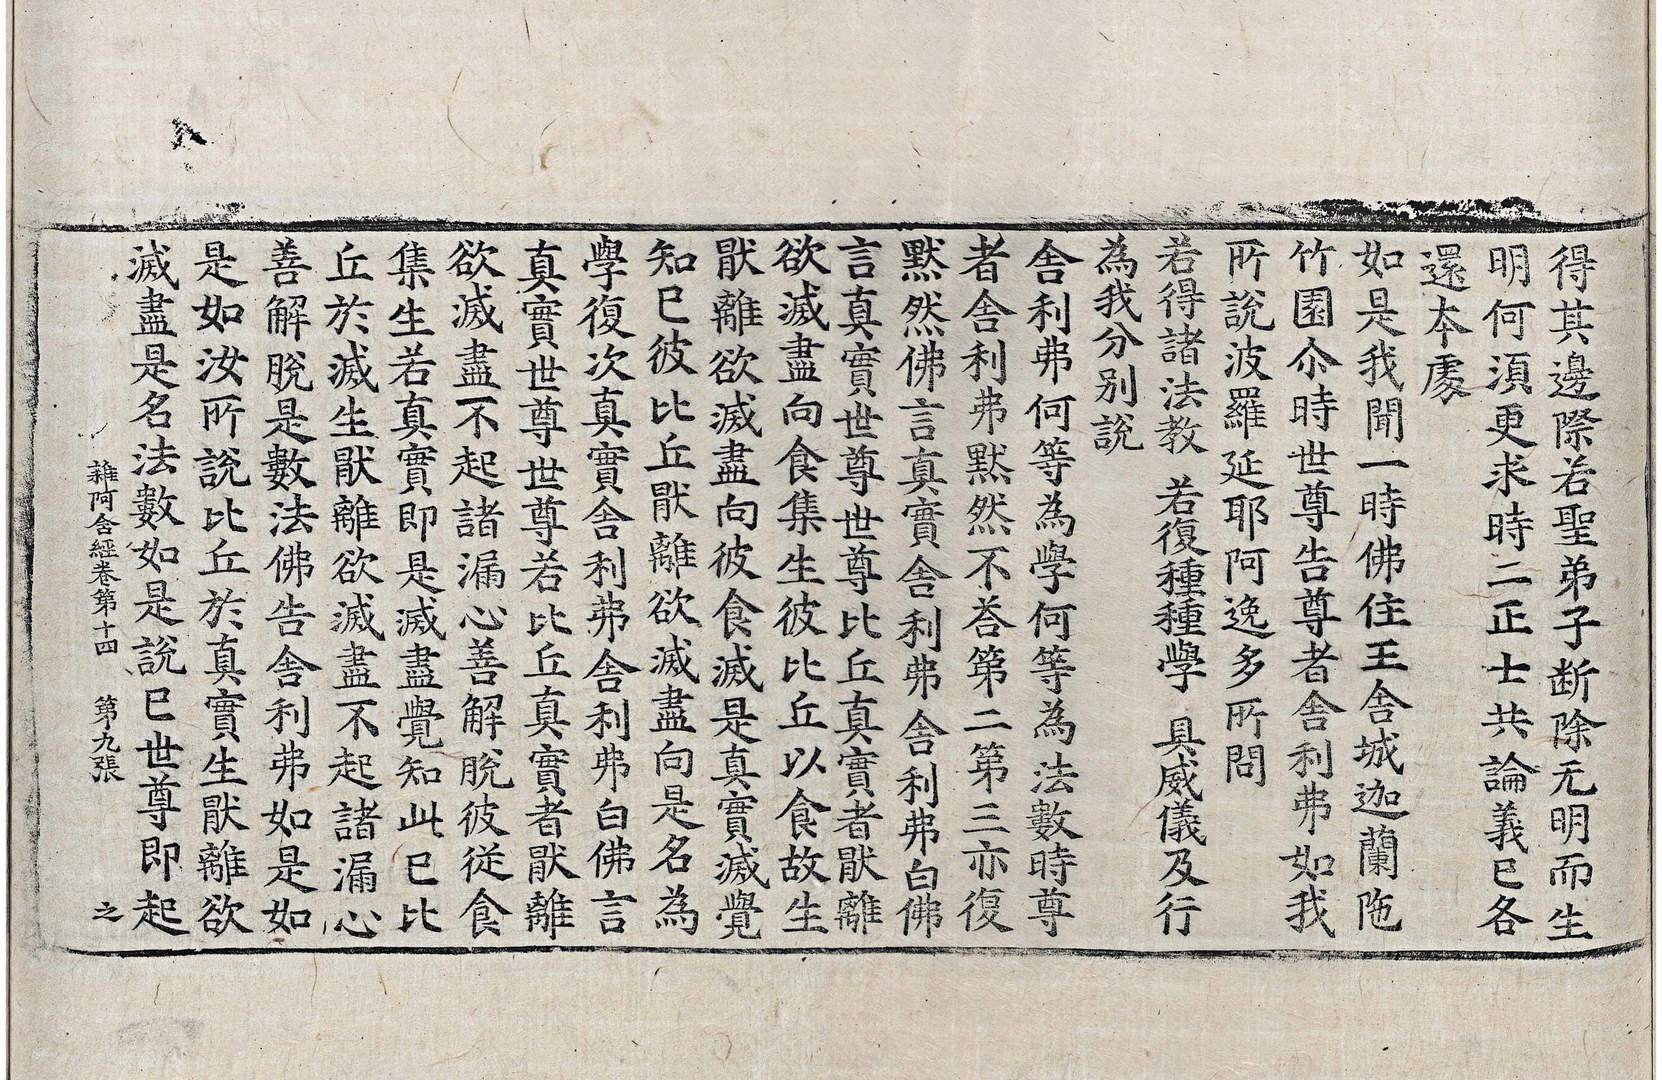 得其邊際若聖弟子断除无明而生
明何湏更求時二正士共論義已各
還本處
如是我聞一時佛住王舍城迦蘭陁
竹園尒時世尊告尊者舍利弗如我
所說波羅延耶阿逸多所問
若得諸法教 若復種種學 具威儀及行
為我分别說
舍利弗何等為學何等為法數時尊
者舍利弗默然不荅第二第三亦復
默然佛言真實舍利弗舍利弗白佛
言真實世尊世尊比丘真實者猒離
欲滅盡向食集生彼比丘以食故生
猒離欲滅盡向彼食滅是真實滅覺
知已彼比丘猒離欲滅盡向是名為
學復次真實舍利弗舍利弗白佛言
真實世尊世尊若比丘真實者猒離
欲滅盡不起諸漏心善解脫彼從食
集生若真實即是滅盡覺知此已比
丘於滅生猒離欲滅盡不起諸漏心
善解脫是數法佛告舍利弗如是如
是如汝所說比丘於真實生猒離欲
滅盡是名法數如是說已世尊即起
雜阿含經卷第十四 第九張 之